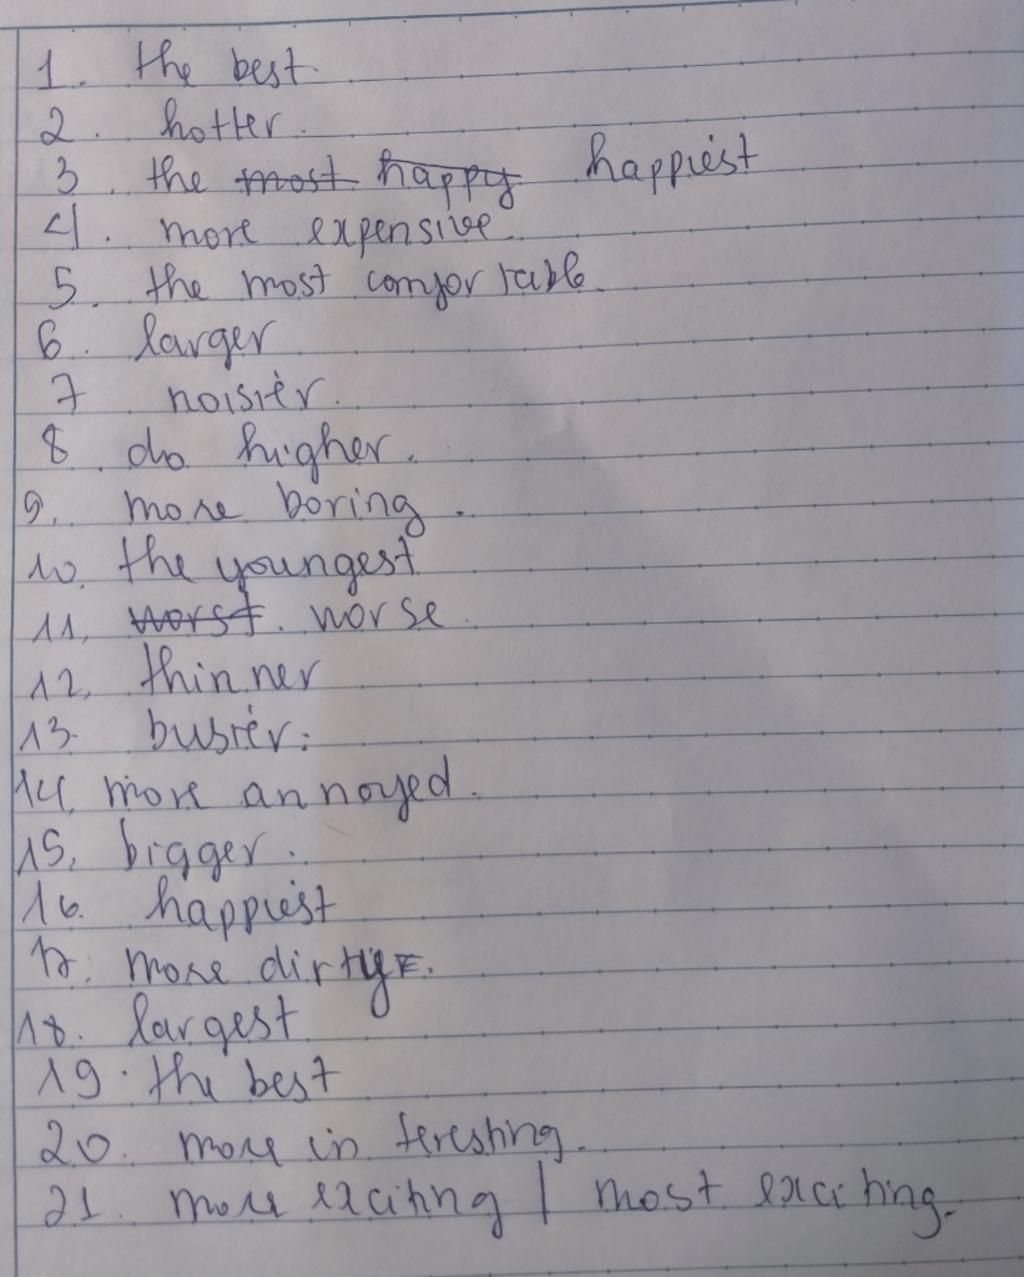 1. the best.
2. hotter.
3. the most happy happiest
4. more expensive.
5. the most comfortable.
6. larger
7 noisier.
8. do higher.
9. more boring.
10. the youngest
11, worst. worse.
12, thinner
13. busier.
14, more annoyed.
15, bigger.
16. happiest
17. more dirty.
18. largest
19. the best
20. more interesting.
21. more exciting / most exciting.